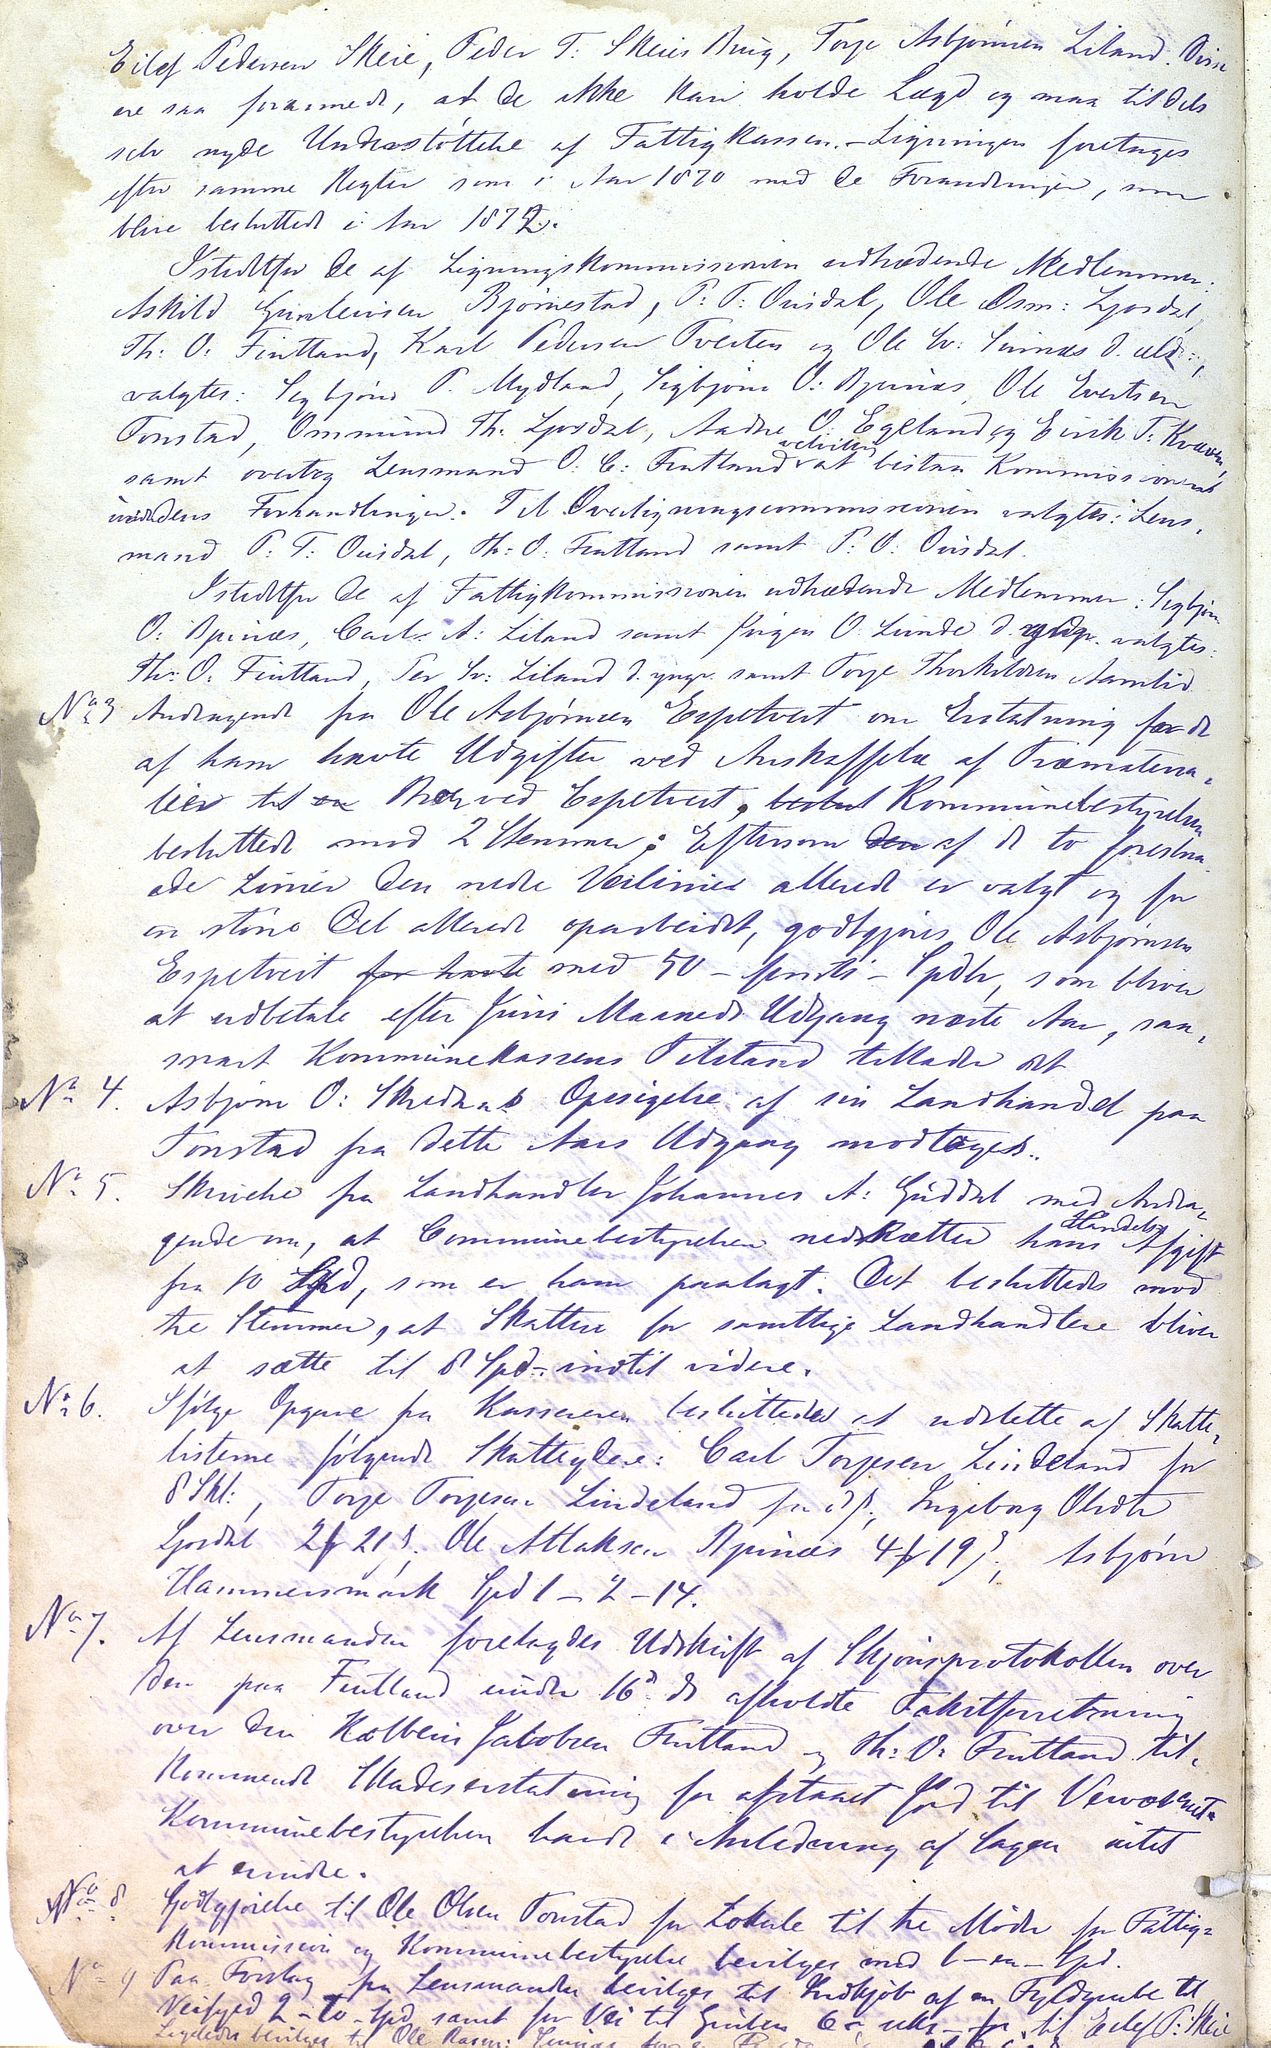 Eilef Pedersen Skeie, Peder T: Skeies Brug, Torje Asbjørnsen Liland. Disse
ere saa forarmede, at de ikke kan holde Lægd og maa tildels
selv nyde Understøttelse af Fattigkassen. - Ligningen foretages
efter samme Regler som i Aar 1870 med de Forandringer, som
blive besluttede i Aar 1872.
Istedetfor de af Ligningskommissionen udtrædende Medlemmer:
Askild Gunleivsen Bjørnestad, P. T. Ousdal, Ole Osm: Ljosdal,
Th: O: Fintland, Karl Pedersen Tveiten og Ole Sv: Sinnæs d. eldr:,
valgtes: Sigbjørn P. Mydland, Sigbjørn O: Apinæs, Ole Evertsen
Tonstad, Ommund Th. Ljosdal, Aadne O. Egeland og Eirik T: Kvæven,
samt overtog Lensmand O. C: Fintland velvilligt at bistaa Kommissionen
indens Forhandlinger. Til Overligningscommissionen valgtes: Lens-
mand P: T: Ousdal, Th: O. Fintland samt P. O: Ousdal.
Istedetfor de af Fattigkommissionen udtrædende Medlemmer: Sigbjørn
O: Apinæs, Carl A: Liland samt Jørgen O. Lunde d. yngr. valgtes:
Th: O. Fintland, Per Sv: Liland d. yngr. samt Torje Thorkildsen Aamlid.
No 3 Andragende fra Ole Asbjørnsen Espetveit om Erstatning for de
af ham havte Udgifter ved Anskaffelse af Træmateria-
lier til en Bro ved Espetveit, beslut Kommunebestyrelsen
besluttede mod 2 Stemmer: Eftersom den af de to foreslaa-
ede Linier den nedre Veilinie allerede er valgt og for
en større Del allerede oparbeidet, godtgjøres Ole Asbjørnsen
Espetveit for havte med 50 - femti - Spdlr, som bliver
at udbetale efter Juni Maaneds Udgang næste Aar, saa-
snart Kommunekassens Tilstand tillader det
No 4. Asbjørn O: Skednas Opsigelse af sin Landhandel paa
Tonstad fra dette Aars Udgang modtoges.
No 5. Skrivelse fra Landhandler Johannes A: Guddal med Andra-
gende om, at Communebestyrelsen nedsætter hans Handels Afgift
fra 10 Spd, som er ham paalagt. Det besluttedes mod
tre Stemmer, at Skatten for samtlige Landhandlere bliver
at sætte til 8 Spd. indtil videre.
No 6. Ifølge Opgave fra Kassereren besluttedes at udslette af Skatte-
listerne følgende Skatteydere: Carl Torjesen Lindeland for
8 Skl:, Torje Torjesen Lindeland for 8 ß, Ingeborg Olsdtr
Ljosdal 2 21 ß. Ole Atlaksen Apinæs 4 19 ß, Asbjørn
Hammersmark Spd 1 - 2 - 14.
No 7. Af Lensmanden forelagdes Udskrift af Skjønsprotokollen over
den paa Fintland under 16de ds afholdte Takstforretning
over den Kolbein Jakobsen Fintland og Th: O: Fintland til-
kommende Skadeserstatning for afstaaet Jord til
Kommunebestyrelsen havde i Anledning af Sagen intet
at erindre.
No 8. Godtgjørelse til Ole Olsen Tonstad for Lokale til tre Møder for Fattig-
kommission og Kommunebestyrelse bevilges med 1 - en - Spd.
No 9 Paa Forslag fra Lensmanden bevilges til Indkjøb af en Fyldgrube til
Veifyld 2 - to - Spd samt for Vei til Gruben til Eilef P: Skeie
Ligeledes bevilges til Ole Rasm: Sinnæs